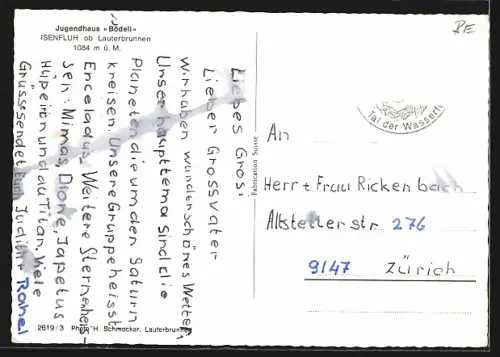 Jugendhaus «Bödeli»
ISENFLUH ob Lauterbrunnen
1084 m ü. M.
Liebes Grosi
Lieber Grossvater
Wir haben wunderschönes Wetter,
Unser Hauptthema sind die
Planeten die um den Saturn
kreisen. Unsere Gruppe heisst
Enceladus. Weitere Sternenhess-
sen: Mimas, Dione, Japetus
Hüperion und au Titan. Viele
Grüsse sendet Euch Judith + Rahel
2619/3 Photo H. Schmocker, Lauterbrunnen
Fabrication Suisse
BE
Tal der Wasserf
An
Herr + Frau Rickenbach
Altstetterstr 276
9147 Zürich